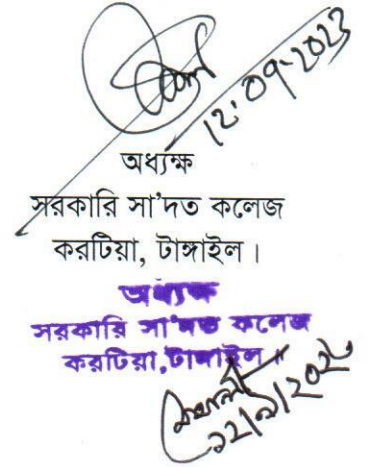 12.09.2023
অধ্যক্ষ
সরকারি সা'দত কলেজ
করটিয়া, টাঙ্গাইল।
অধ্যক্ষ
সরকারি সা'দত কলেজ
করটিয়া, টাঙ্গাইল।